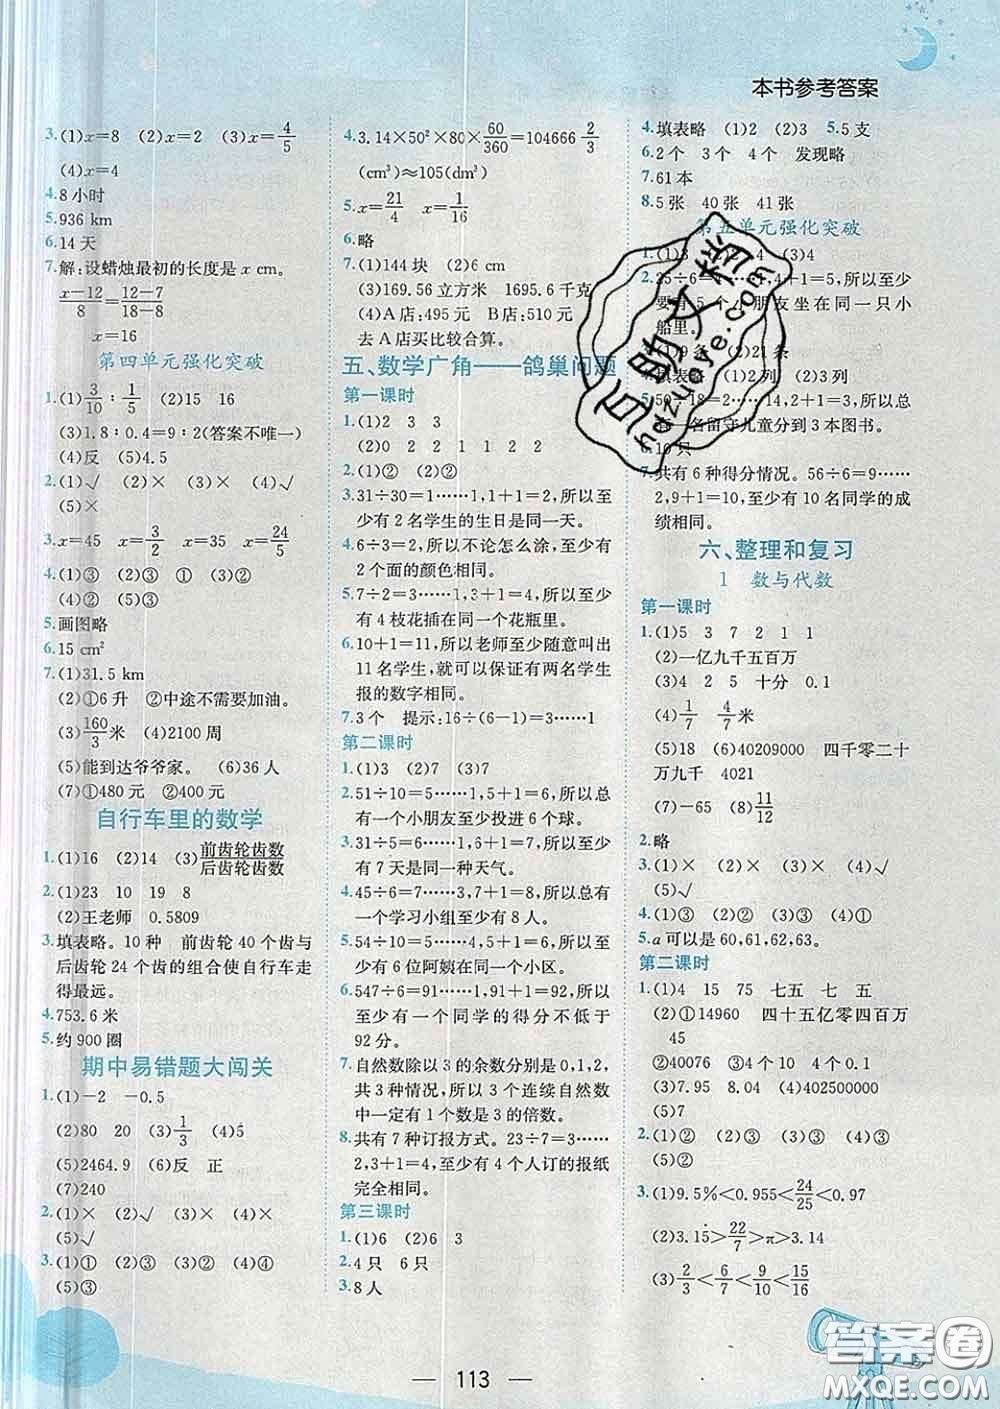 本书参考答案
3.(1)x=8 (2)x=2 (3)x=4/5
(4)x=4
4.8小时
5.936 km
6.14天
7.解:设蜡烛最初的长度是x cm。
(x-12)/8=(12-7)/(18-8)
x=16
第四单元强化突破
1.(1)3/10:1/5 (2)15 16
(3)1.8:0.4=9:2(答案不唯一)
(4)反 (5)4.5
2.(1)√ (2)× (3)× (4)√
(5)×
3.x=45 x=3/2 x=35 x=24/5
4.(1)③ (2)③ (3)① (4)③
(5)② (6)②
5.画图略
6.15 cm²
7.(1)31.5 km
(2)①6升 ②中途不需要加油。
(3)160/3米 (4)2100周
(5)能到达爷爷家。 (6)36人
(7)①480元 ②400元
自行车里的数学
1.(1)16 (2)14 (3)前齿轮齿数/后齿轮齿数
2.(1)23 10 19 8
(2)王老师 0.5809
3.填表略。10种 前齿轮40个齿与
后齿轮24个齿的组合使自行车走
得最远。
4.753.6米
5.约900圈
期中易错题大闯关
1.(1)-2 -0.5
(2)80 20 (3)1/3 (4)5
(5)2464.9 (6)反 正
(7)240
2.(1)× (2)√ (3)× (4)×
(5)√
3.(1)① (2)③ (3)② (4)③
(5)③
4.3.14×50²×80×60/360=104666 2/3
(cm³)≈105(dm³)
5.x=21/4 x=1/16
6.略
7.(1)144块 (2)6cm
(3)169.56立方米 1695.6千克
(4)A店:495元 B店:510元
去A店买比较合算。
五、数学广角——鸽巢问题
第一课时
1.(1)2 3 3
(2)0 2 2 1 1 2 2
2.(1)× (2)√ (3)√
3.31÷30=1……1,1+1=2,所以至
少有2名学生的生日是同一天。
4.6÷3=2,所以不论怎么涂,至少有
2个面的颜色相同。
5.7÷2=3……1,3+1=4,所以至少有
4枝花插在同一个花瓶里。
6.10+1=11,所以老师至少随意叫出
11名学生,就可以保证有两名学生
报的数字相同。
7.3个 提示:16÷(6-1)=3……1
第二课时
1.(1)3 (2)7 (3)7
2.51÷10=5……1,5+1=6,所以总
有一个小朋友至少投进6个球。
3.31÷5=6……1,6+1=7,所以至少
有7天是同一种天气。
4.45÷6=7……3,7+1=8,所以总有
一个学习小组至少有8人。
5.54÷10=5……4,5+1=6,所以至少
有6位阿姨在同一个小区。
6.547÷6=91……1,91+1=92,所以
至少有一个同学的得分不低于
92分。
7.自然数除以3的余数分别是0,1,2,
共3种情况,所以3个连续自然数
中一定有1个数是3的倍数。
8.共有7种订报方式。23÷7=3……
2,3+1=4,所以至少4个人订的报纸
完全相同。
第三课时
1.(1)6 (2)6 3
2.4只 6只
3.8人
4.填表略 (1)2 (2)3 5.5支
6.2个 3个 4个 发现略
7.61本
8.5张 40张 41张
第五单元强化突破
1.(1)3 (3)5 (4)4
2.25÷6=4……1,4+1=5,所以至少
要有5个小朋友坐在同一只小
船里。
3.(1)9条 (2)21条
4.填表略 (1)2列 (2)3列
5.50÷18=2……14,2+1=3,所以总
有一名留守儿童分到3本图书。
6.10只
7.共有6种得分情况。56÷6=9……
2,9+1=10,至少有10名同学的成
绩相同。
六、整理和复习
1 数与代数
第一课时
1.(1)5 3 7 2 1 1
(2)一亿九千五百万
(3)4 2 5 十分 0.1
(4)1/7 4/7米
(5)18 (6)40209000 四千零二十
万九千 4021
(7)-65 (8)11/12
2.略
3.(1)× (2)× (3)× (4)×
(5)√
4.(1)③ (2)② (3)① (4)②
5.a可以是60,61,62,63。
第二课时
1.(1)4 15 75 七五 七 五
(2)①14960 四十五亿零四百万
45
②40076 ③4 4
(3)7.95 8.04 (4)402500000
2.(1)② (2)② (3)① (4)③
(5)③
3.(1)9.5%<0.955<24/25<0.97
(2)3.1̇>22/7>π>3.14
(3)2/3<6/7<9/10<15/16
113
作业 助 文档
hdzuoye.com
答案圈
MXQE.COM